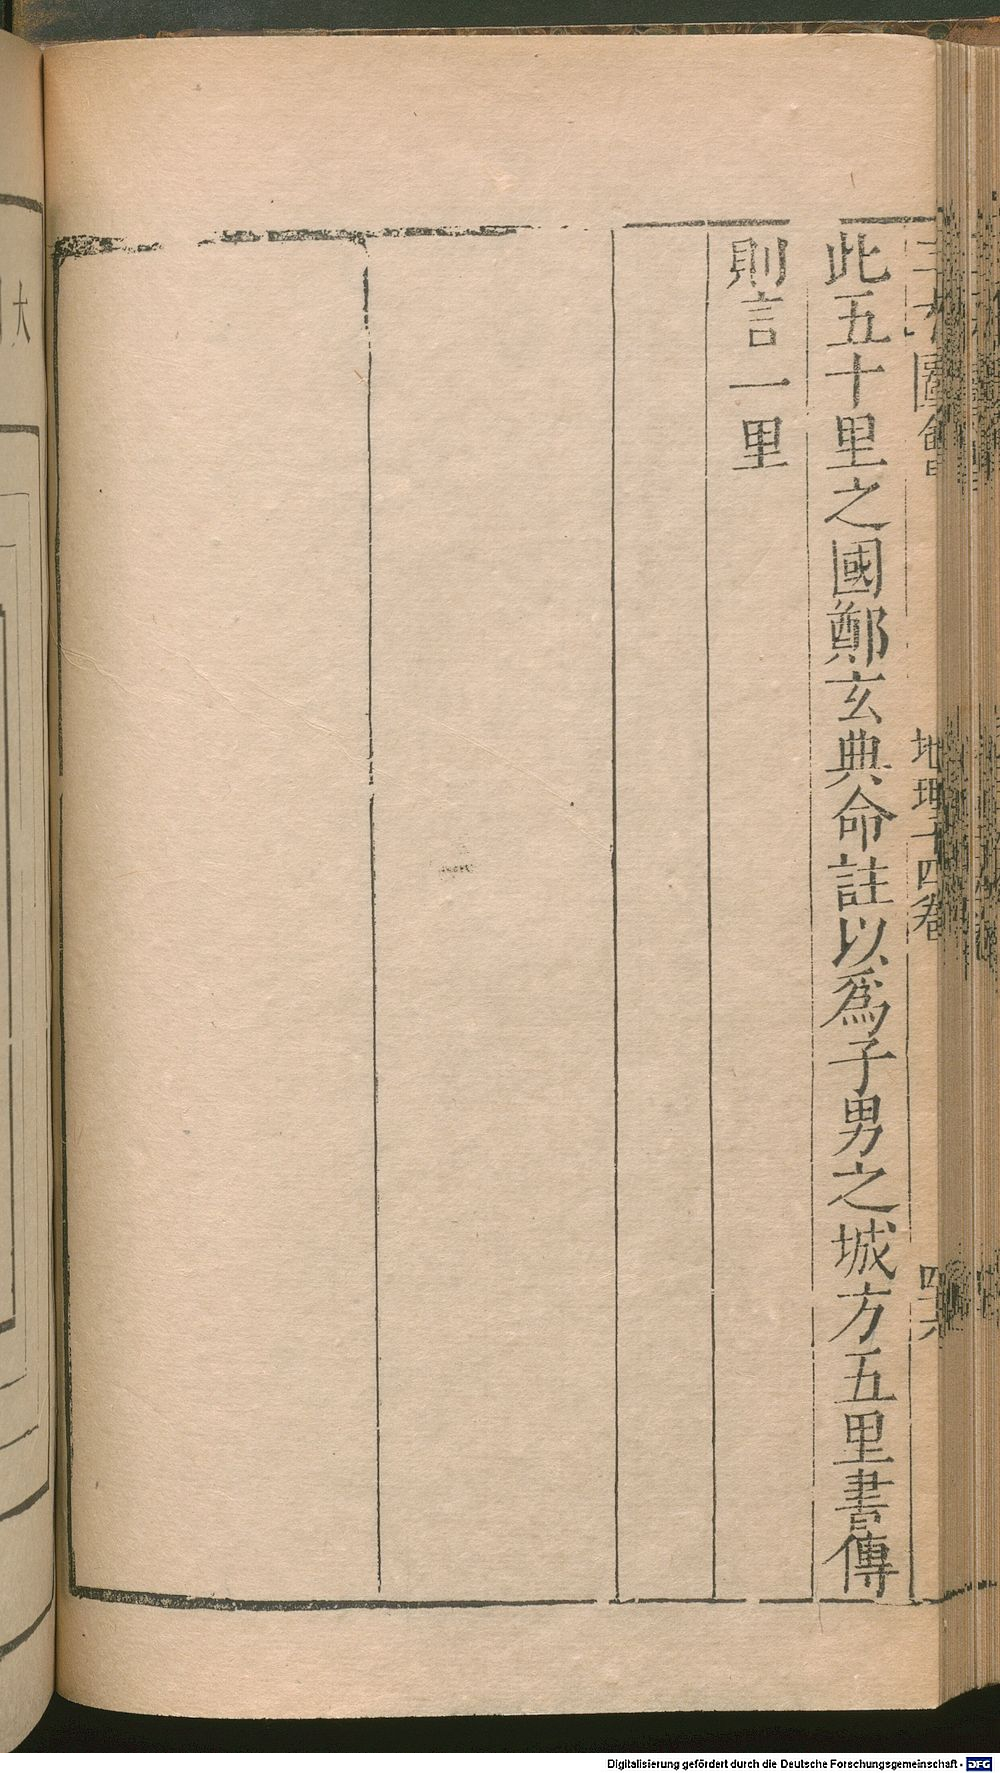 三才圖會
地理十四卷
四六
此五十里之國鄭玄典命註以爲子男之城方五里書傳
則言一里
大
Digitalisierung gefördert durch die Deutsche Forschungsgemeinschaft - DFG